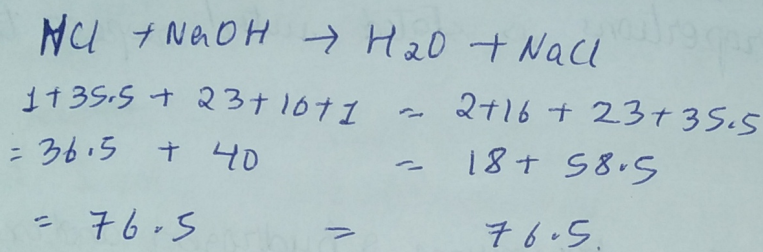 HCl + NaOH → H2O + NaCl
1+35.5 + 23+16+1 = 2+16 + 23+35.5
= 36.5 + 40 = 18 + 58.5
= 76.5 = 76.5.